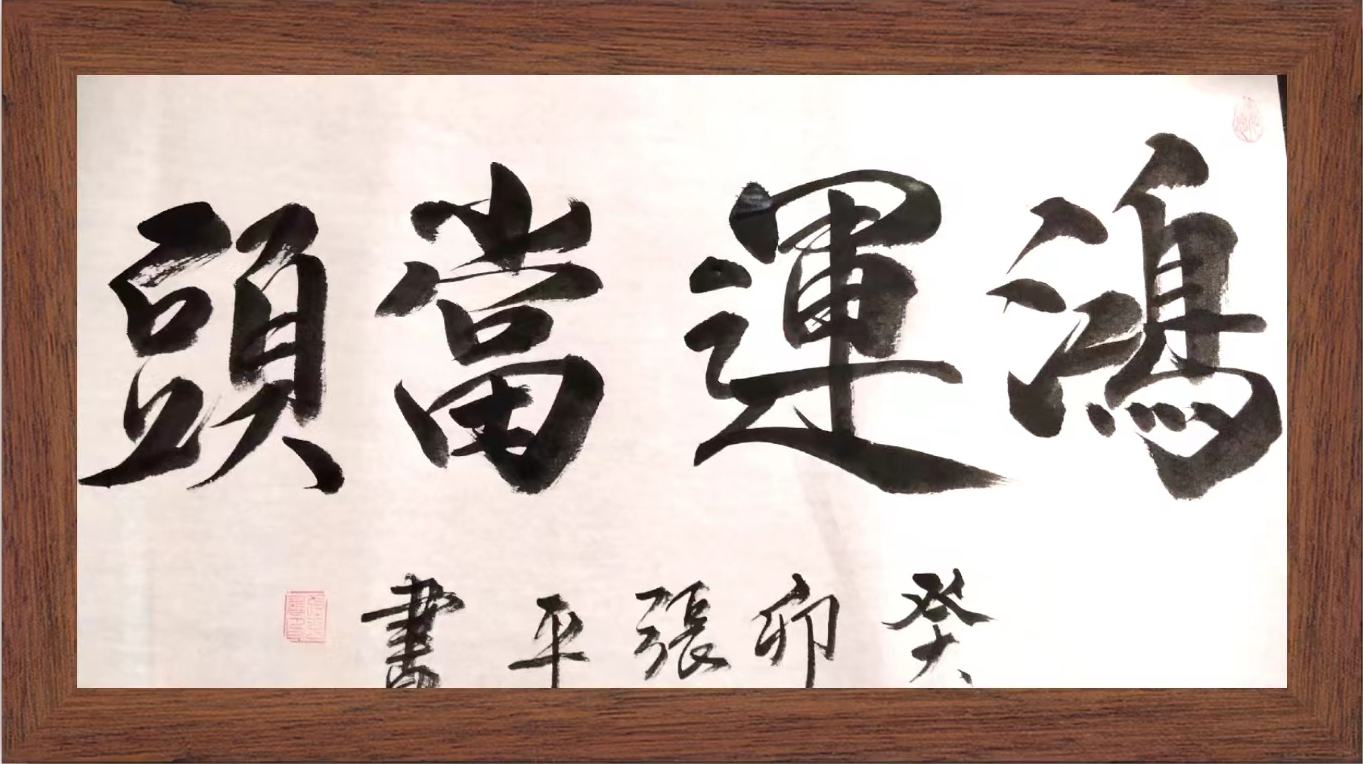 鴻運當頭
癸卯張平書